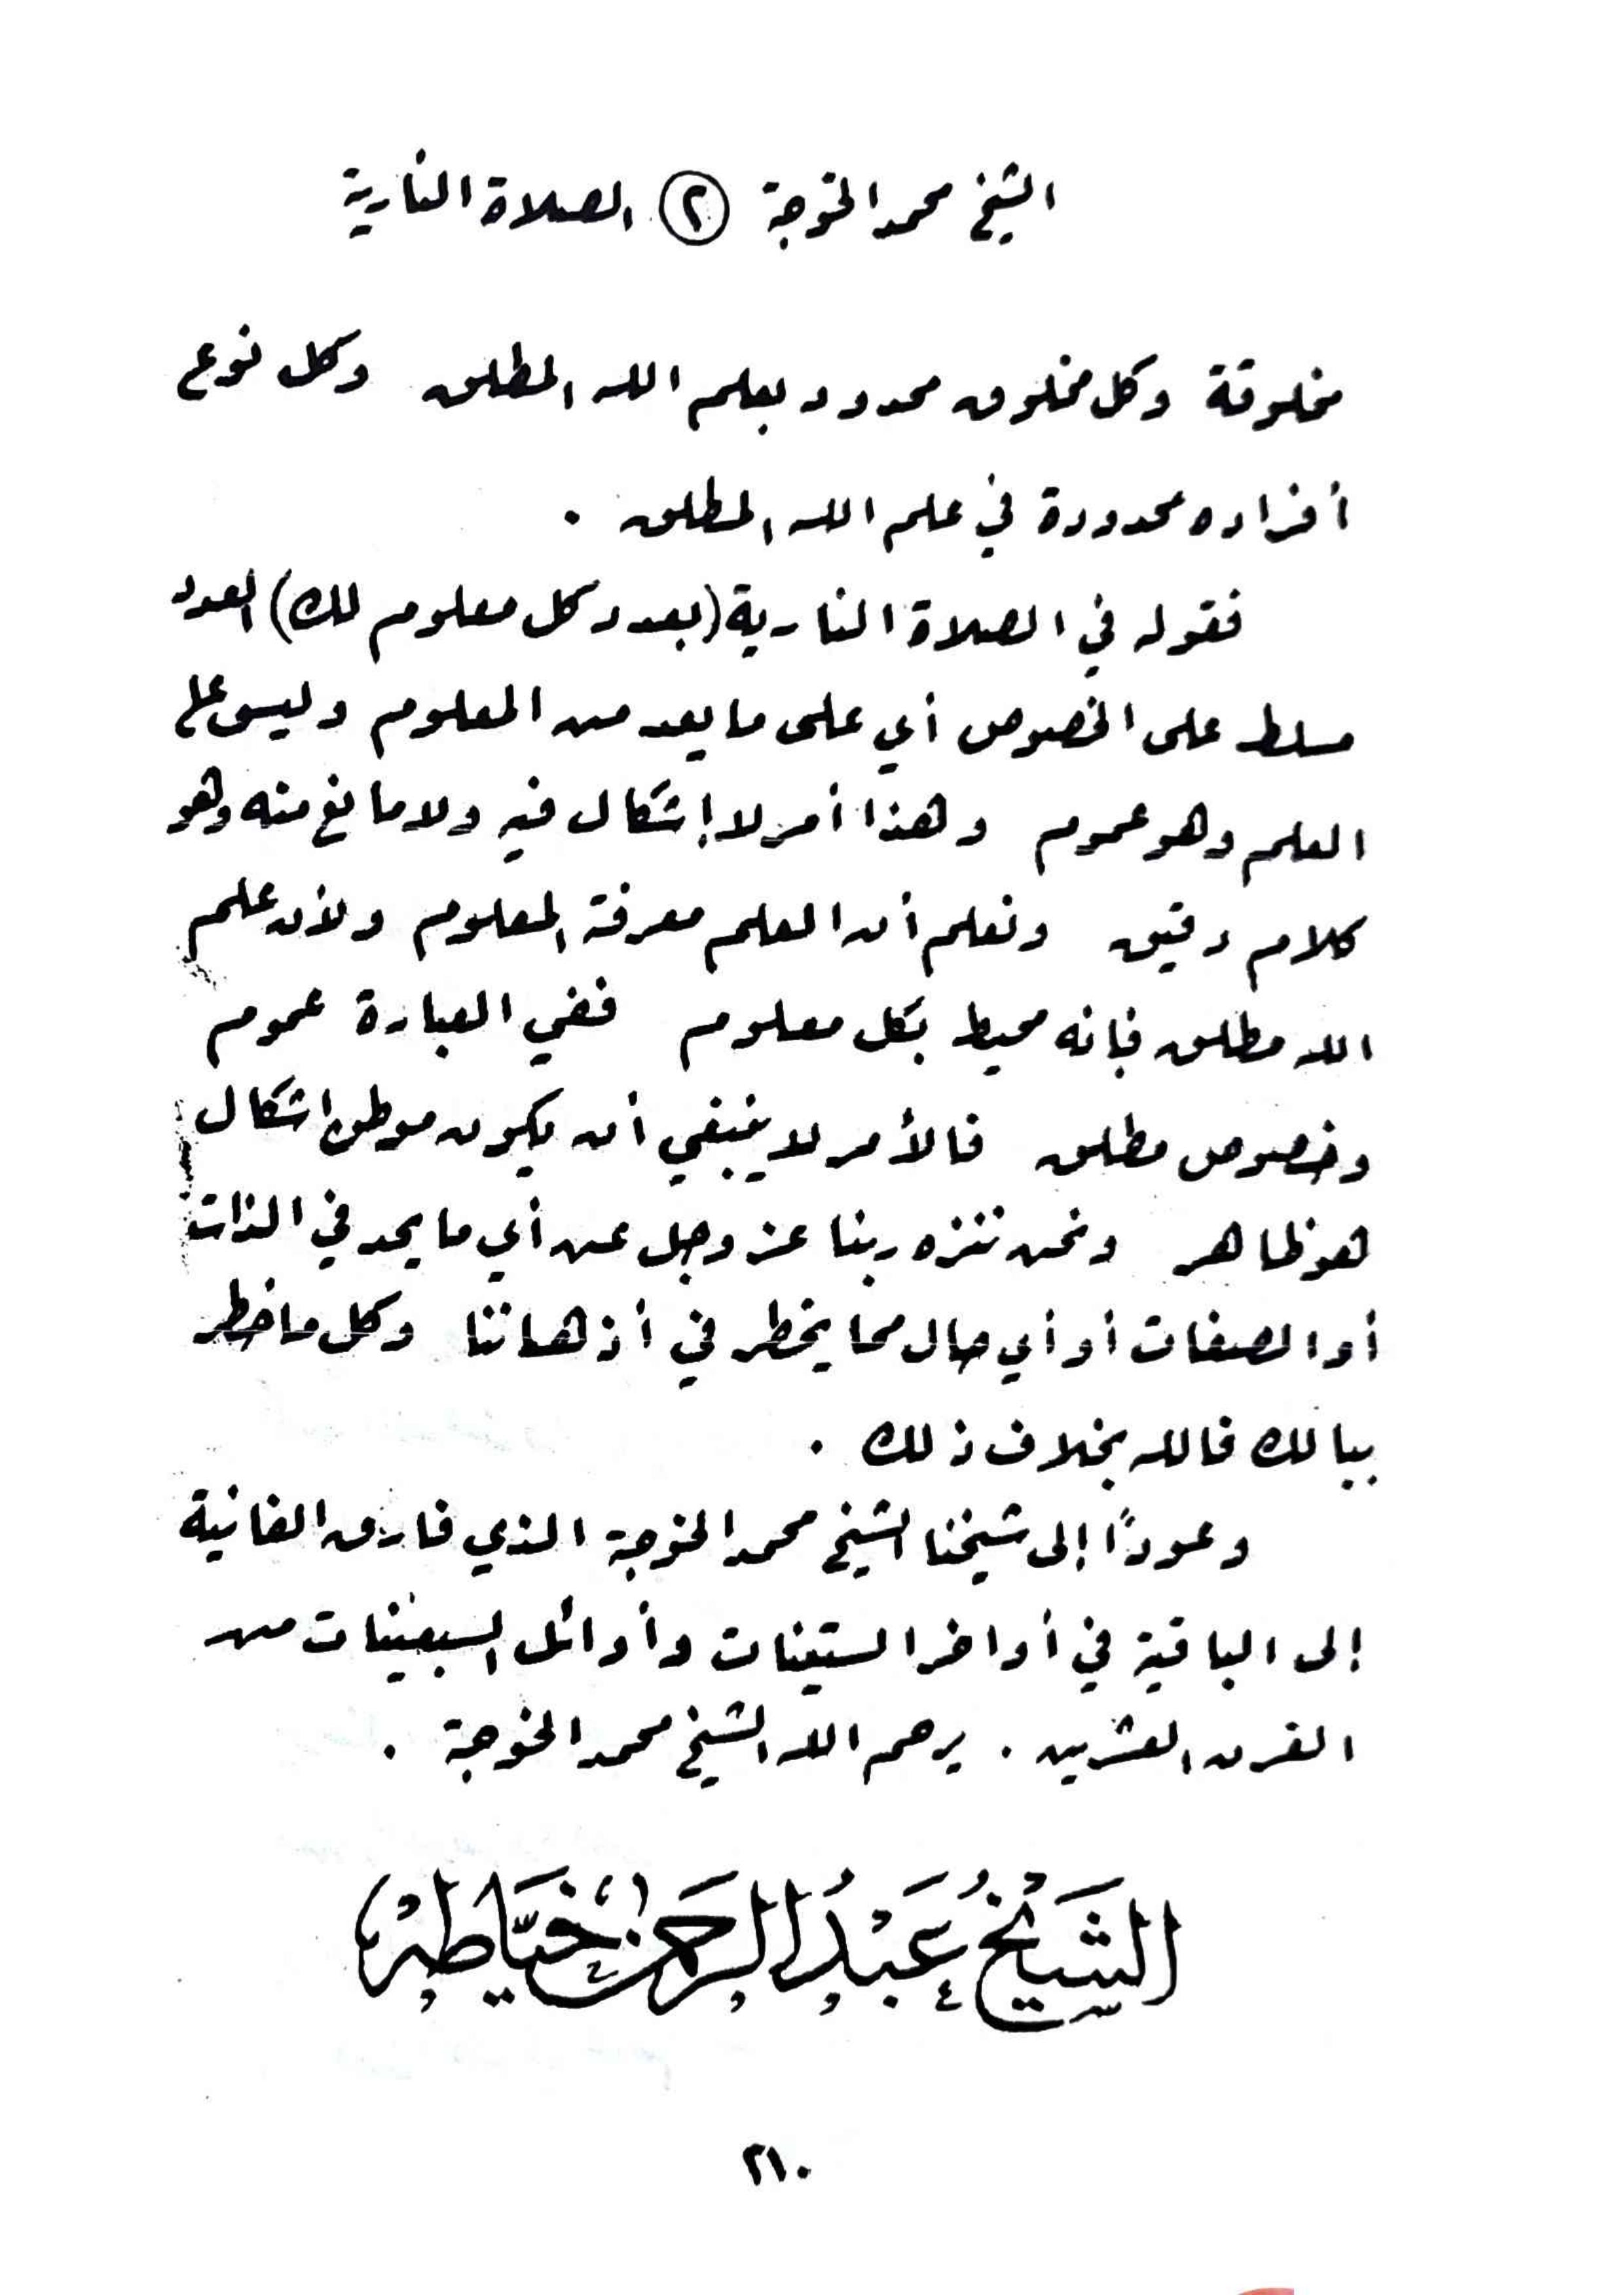 الشيخ محمد الخوجة ٢ الصلاة النارية
مخلوقة وكل مخلوق محدود بعلم الله المطلق وكل نوع
أفراده محدودة في علم الله المطلق .
فقوله في الصلاة النارية (بعدد كل معلوم لك) العدد
مسلط على الخصوص أي على ما يعد من المعلوم وليس على
العلم وهو عموم وهذا أمر لا إشكال فيه ولا مانع منه وهو
كلام دقيق ونعلم أن العلم معرفة المعلوم ولأن علم
الله مطلق فإنه محيط بكل معلوم ففي العبارة عموم
وخصوص مطلق فالأمر لا ينبغي أن يكون موطن اشكال
هو ظاهر ونحن ننزه ربنا عز وجل عن أي ما يحد في الذات
أو الصفات أو أي حال مما يخطر في أذهاننا وكل ما خطر
ببالك فالله بخلاف ذلك .
وعودًا إلى شيخنا الشيخ محمد الخوجة الذي فارق الفانية
إلى الباقية في أواخر الستينات وأوائل السبعينات من
القرن العشرين . يرحم الله الشيخ محمد الخوجة .
الشَيْخُ عَبْدُ الرَحمن خَيَّاطَة
٢١٠